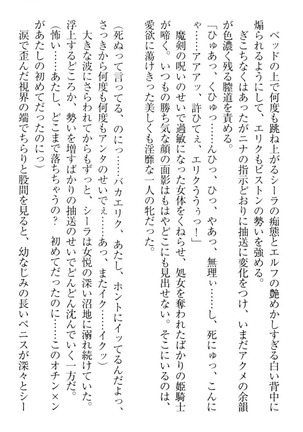 ベッドの上で何度も跳ね上がるシーラの痴態とエルフの艶めかしすぎる白い背中に
煽られるようにして、エリクもピストンの勢いを強める。
ぎこちなくはあったがニナの指示どおりに抽送に変化をつけ、いまだアクメの余韻
が色濃く残る膣道を責める。
「ひゅあっ、くひゅっ……んひっ、ひっ、やあっ、無理ぃ……し、死にゅっ、こんに
ゃ……アアアッ、許ひてぇ、エリクうううっ！」
魔剣の呪いのせいで過敏になった女体をくねらせ、処女を奪われたばかりの姫騎士
が啼く。いつもの勝ち気な顔の面影はもはやどこにも見出せない。そこにいるのは、
愛欲に蕩けきった美しくも淫靡な一人の牝だった。
（死ぬって言ってる、のにっ……バカエリク、あたし、ホントにイッてるんだよぉっ、
さっきから何度も何度もアンタのせいでぇ……あっ、またイク……イクッ）
大きな波にさらわれてからもずっと、シーラは女悦の深い沼地に溺れ続けていた。
浮上するどころか、勢いを増すばかりの抽送のせいでどんどん沈んでいく一方だ。
（怖い……あたし、どこまで落ちちゃうの？　初めてだったのに……このオチン×ン
があたしの初めてだったのにっ）
涙で歪んだ視界の端でちらりと股間を見ると、幼なじみの長いペニスが深々とシー